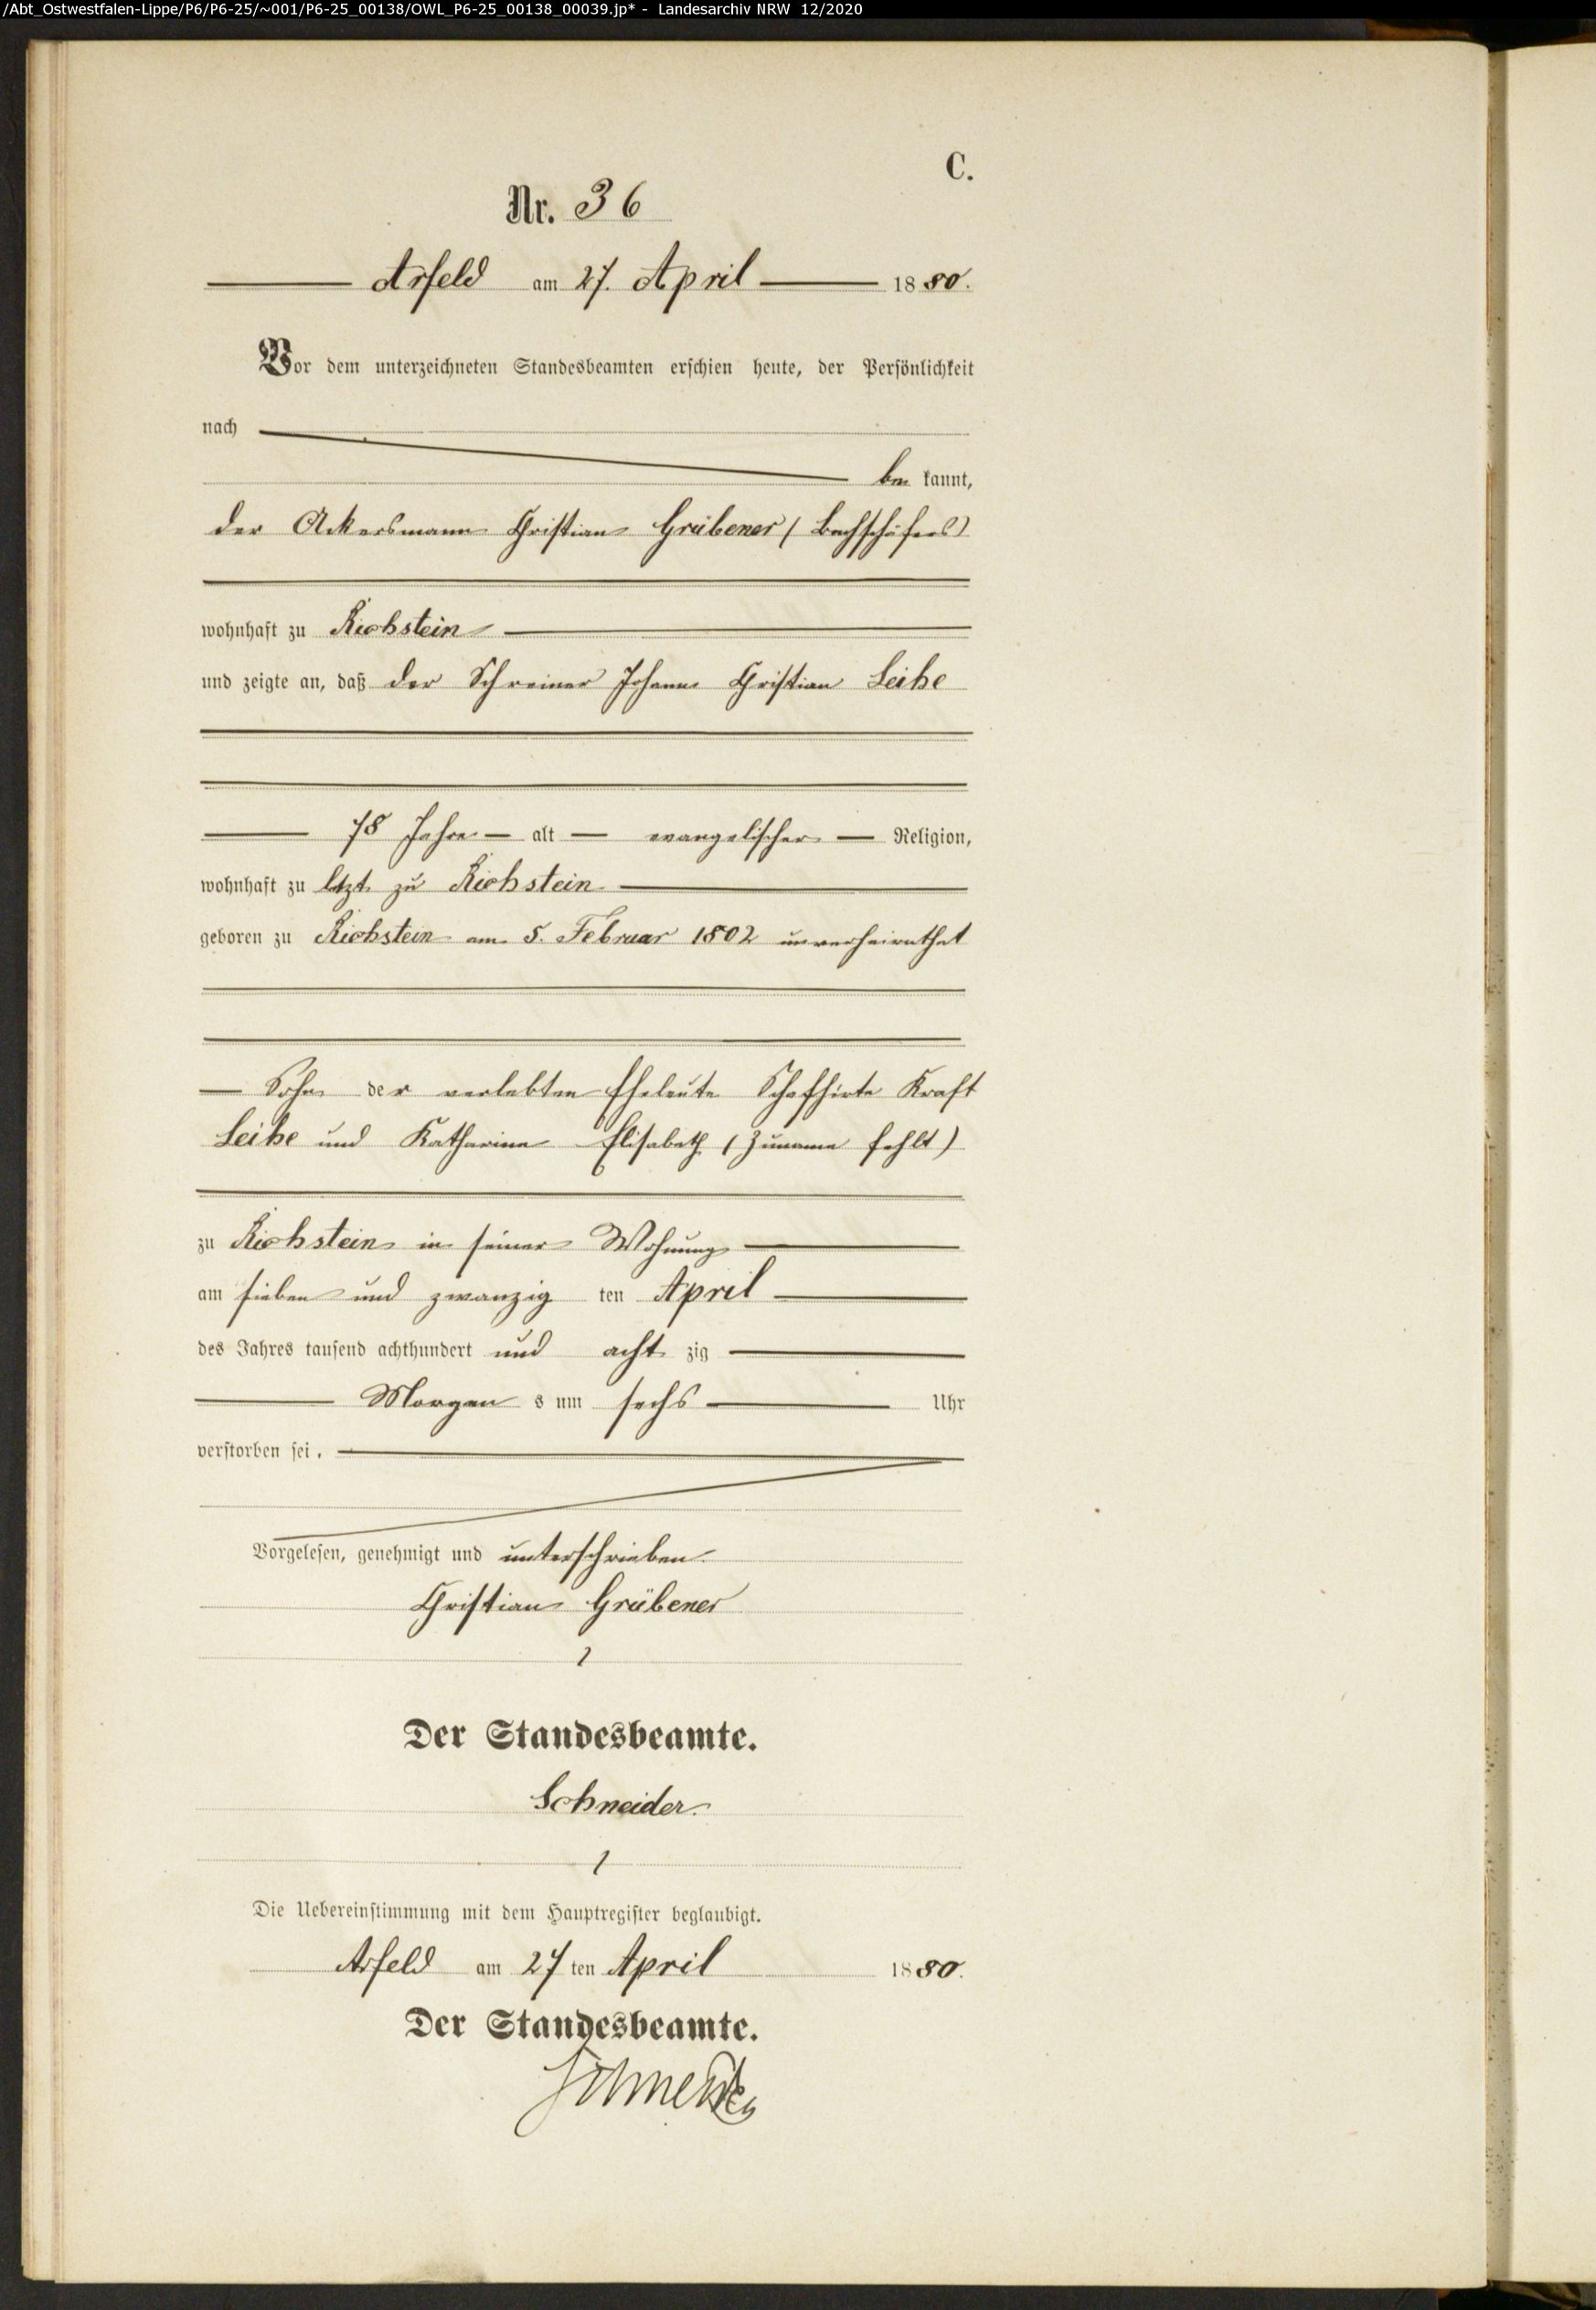 /Abt_Ostwestfalen-Lippe/P6/P6-25/~001/P6-25_00138/OWL_P6-25_00138_00039.jp* - Landesarchiv NRW 12/2020
C.
Nr. 36
Arfeld am 27. April 1880.
Vor dem unterzeichneten Standesbeamten erschien heute, der Persönlichkeit
nach
be kannt,
der Ackersmann Christian Grübener (Bachschäfers)
wohnhaft zu Richstein
und zeigte an, daß der Schreiner Johann Christian Leihe
78 Jahre alt evangelischer Religion,
wohnhaft zu letzt zu Richstein
geboren zu Richstein am 5. Februar 1802 unverheirathet
Sohn der verlebten Eheleute Schafhirte Kraft
Leihe und Katharine Elisabeth (Zuname fehlt)
zu Richstein in seiner Wohnung
am sieben und zwanzig ten April
des Jahres tausend achthundert und acht zig
Morgen s um sechs Uhr
verstorben sei.
Vorgelesen, genehmigt und unterschrieben
Christian Grübener
Der Standesbeamte.
Schneider.
Die Uebereinstimmung mit dem Hauptregister beglaubigt.
Arfeld am 27 ten April 1880.
Der Standesbeamte.
Schneider